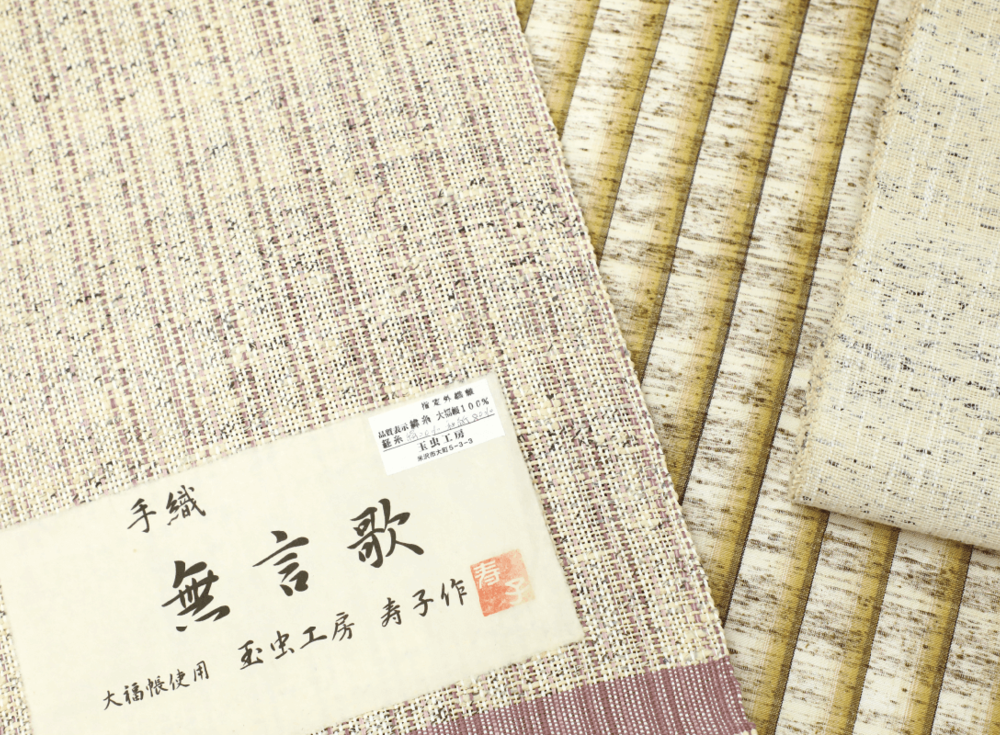 指定外繊維
品質表示 緯糸 大福帳100%
経糸
玉虫工房
米沢市大町5-3-3
手織
無言歌
大福帳使用 玉虫工房 寿子作
寿子